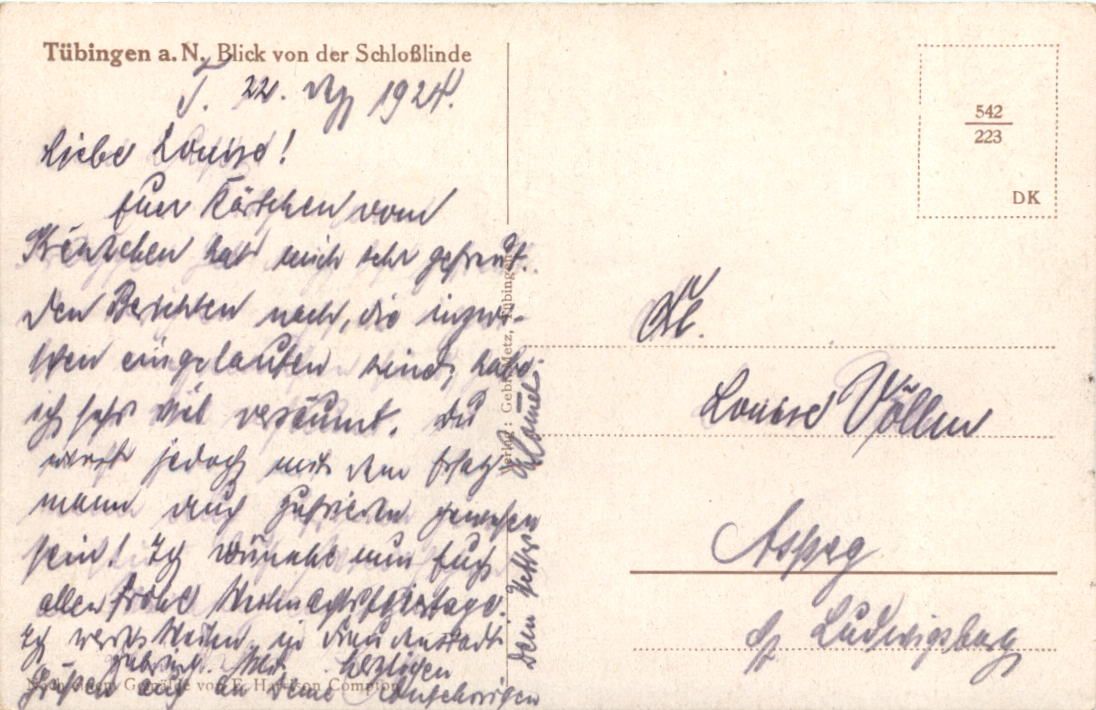 Tübingen a. N. Blick von der Schloßlinde
T. 22. Dez 1924.
Liebe Louise!
Euer Kärtchen vom
Kränzchen hat mich sehr gefreut.
Den Berichten nach, die inzwi-
schen eingelaufen sind, habe
ich sehr viel versäumt. Du
wirst jedoch mit dem Ersatz-
mann auch zufrieden gewesen
sein! Ich wünsche nun Euch
allen frohe Weihnachtsfeiertage.
Ich werde Weihn. in Freudenstadt
zubringen. Mit herzlichen
Grüßen auch an Deine Angehörigen
Dein Vetter
Nach einem Gemälde von E. Harrison Compton
Verlag: Gebr. Metz, Tübingen
542
223
DK
Frl.
Louise Völlm
Asperg
b/ Ludwigsburg